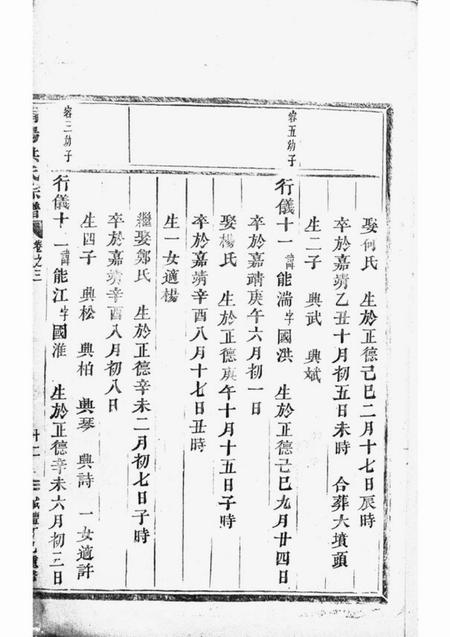 娶何氏 生於正德己巳二月十七日辰時
卒於嘉靖乙丑十月初五日未時 合葬大墳頭
生二子 興武 興斌
容五幼子
行儀十一諱能湍字國洪 生於正德己巳九月廿四日
卒於嘉靖庚午六月初一日
娶楊氏 生於正德庚午十月十五日子時
卒於嘉靖辛酉八月十七日丑時
生一女適楊
繼娶鄭氏 生於正德辛未二月初七日子時
卒於嘉靖辛酉八月初八日
生四子 興松 興柏 興琴 興詩 一女適許
容三幼子
行儀十二諱能江字國淮 生於正德辛未六月初三日
陽洪氏宗譜 卷之三